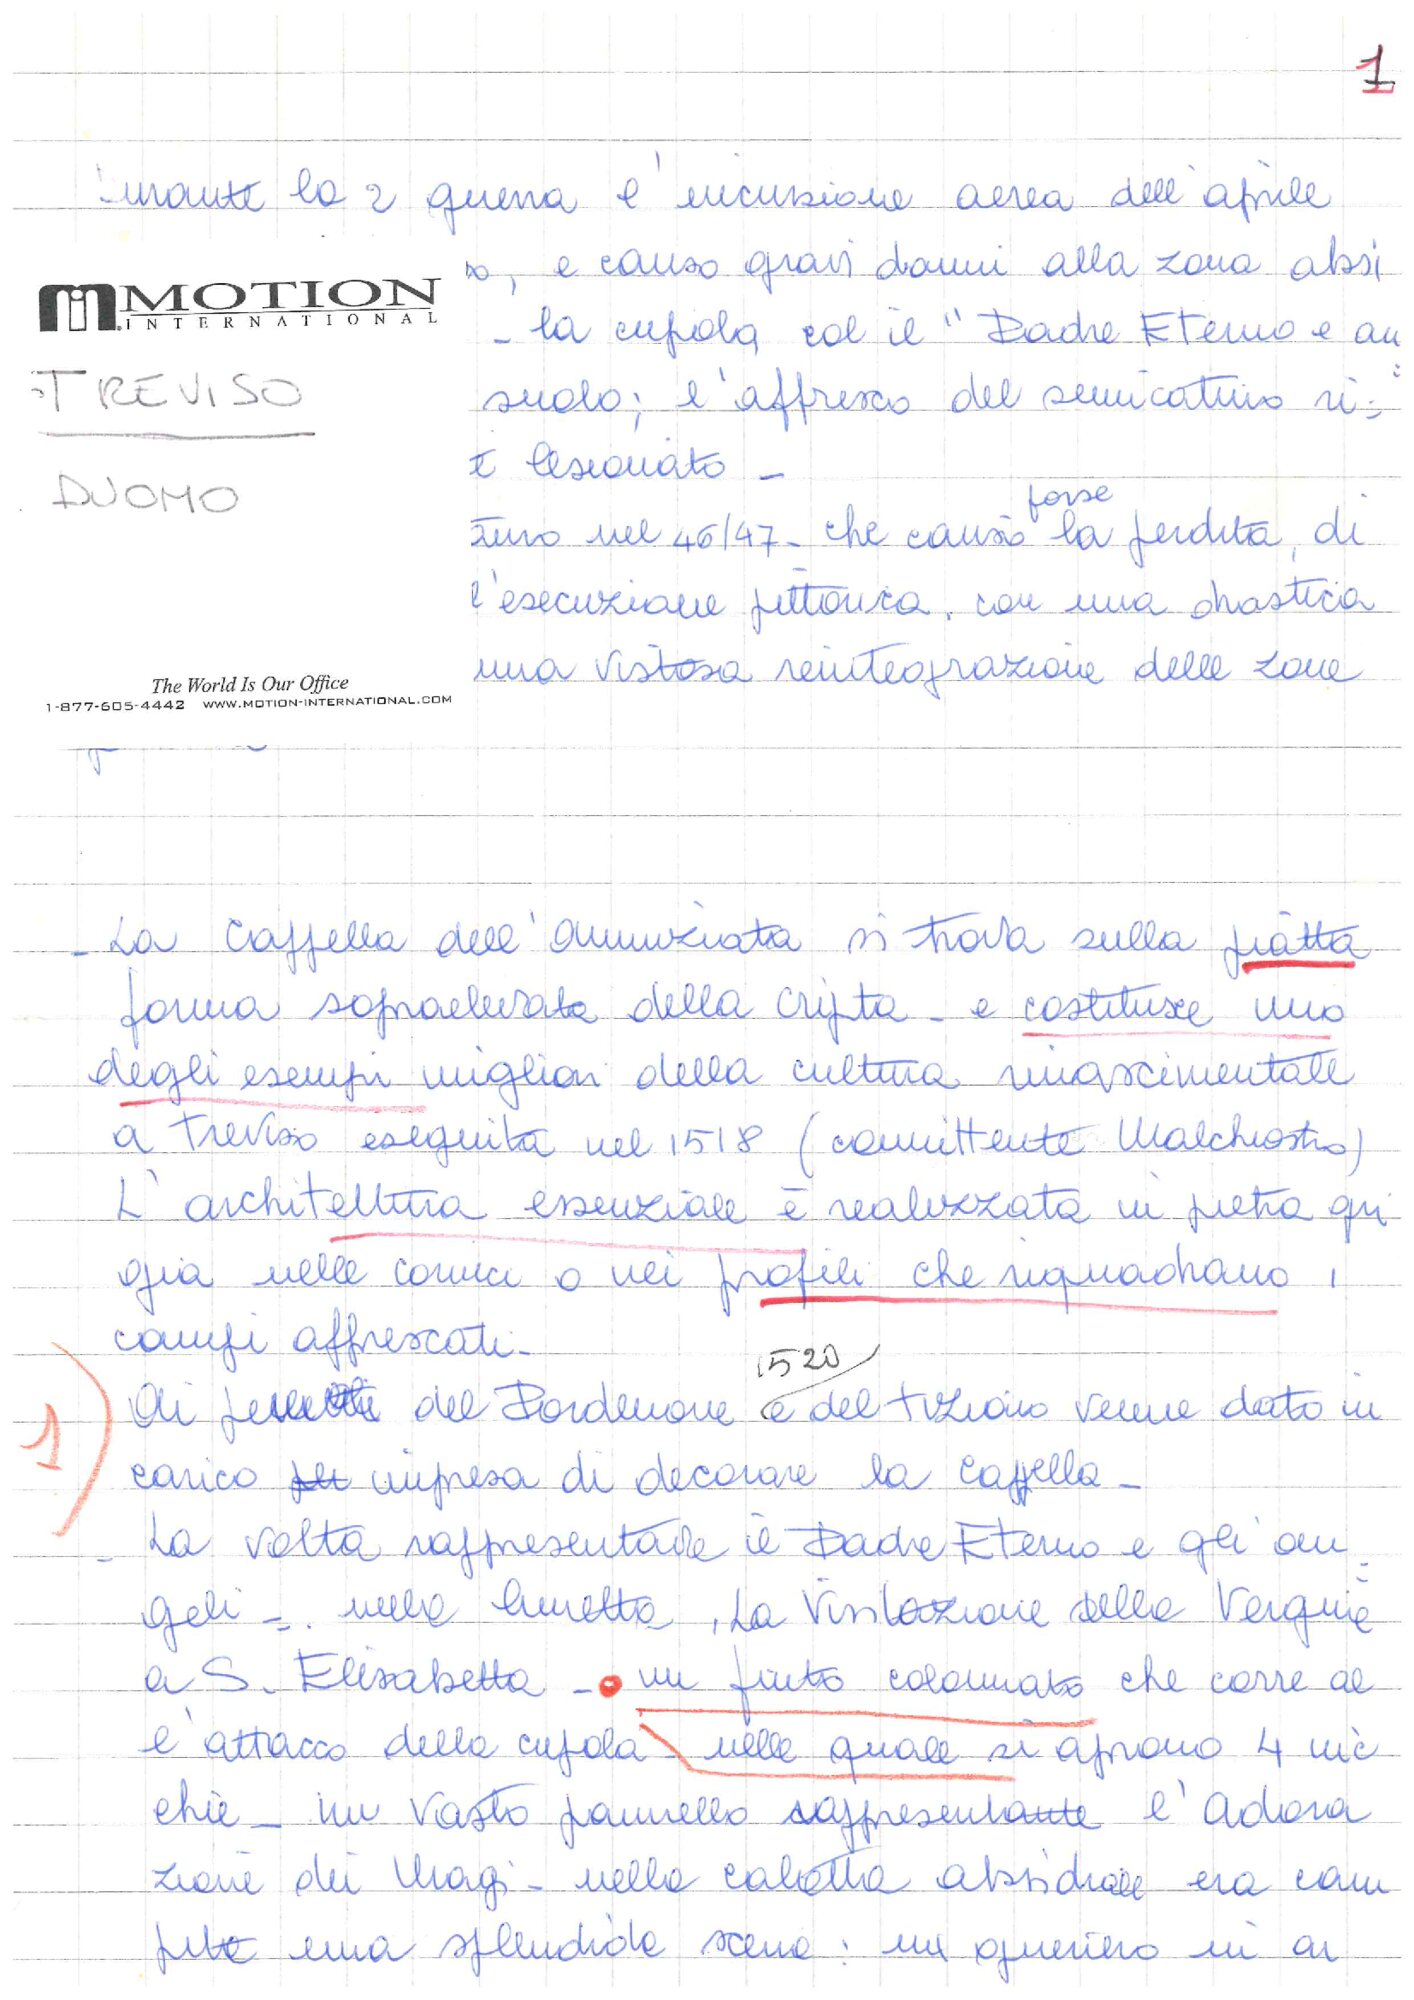 1
durante la 2 guerra l'incursione aerea dell'aprile
, e causò gravi danni alla zona absi
- la cupola, col il "Padre Eterno e an
suolo; l'affresco del semicatino ri=
lesionato -
forse
nel 46/47 - che causò la perdita, di
l'esecuzione pittorica, con una drastica
una vistosa reintegrazione delle zone
MOTION
INTERNATIONAL
TREVISO
DUOMO
The World Is Our Office
1-877-605-4442 WWW.MOTION-INTERNATIONAL.COM
- La Cappella dell'Annunziata si trova sulla piatta
forma sopraelevata della Cripta - e costituisce uno
degli esempi migliori della cultura rinascimentale
a Treviso eseguita nel 1518 (committente Malchiostro)
L'architettura essenziale è realizzata in pietra gri
gia nelle cornici o nei profili che riquadrano i
campi affrescati -
1520
1) Ai pennelli del Pordenone e del Tiziano venne dato in
carico impresa di decorare la cappella -
- La volta rappresentava il Padre Eterno e gli an
geli - nella lunetta, La Visitazione della Vergine
a S. Elisabetta - un finto colonnato che corre al
l'attacco della cupola - nelle quale si aprono 4 nic
chie - un vasto pannello rappresentante l'Adora
zione dei Magi - nella calotta absidale era com
una splendida scena: un guerriero in ar